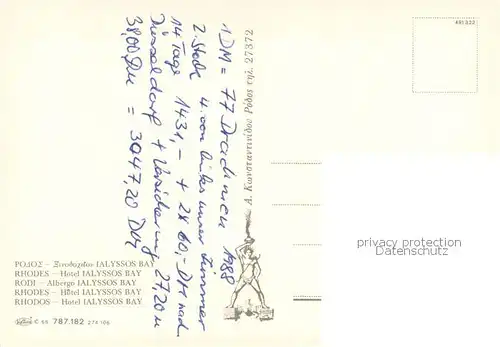 1DM = 77 Drachmen 1988
2. Stock 4. von links unser Zimmer
14 Tage 1431,- + 2x 60,- DM nach
Düsseldorf + Versicherung 27,20 M
38,00 DM = 3047,20 DM
Α. Κωνσταντινίδου Ρόδος τηλ. 27372
491322
privacy protection
Datenschutz
ΡΟΔΟΣ - Ξενοδοχεῖον IALYSSOS BAY
RHODES - Hotel IALYSSOS BAY
RODI - Albergo IALYSSOS BAY
RHODES - Hôtel IALYSSOS BAY
RHODOS - Hotel IALYSSOS BAY
C 55 787.182 274 106